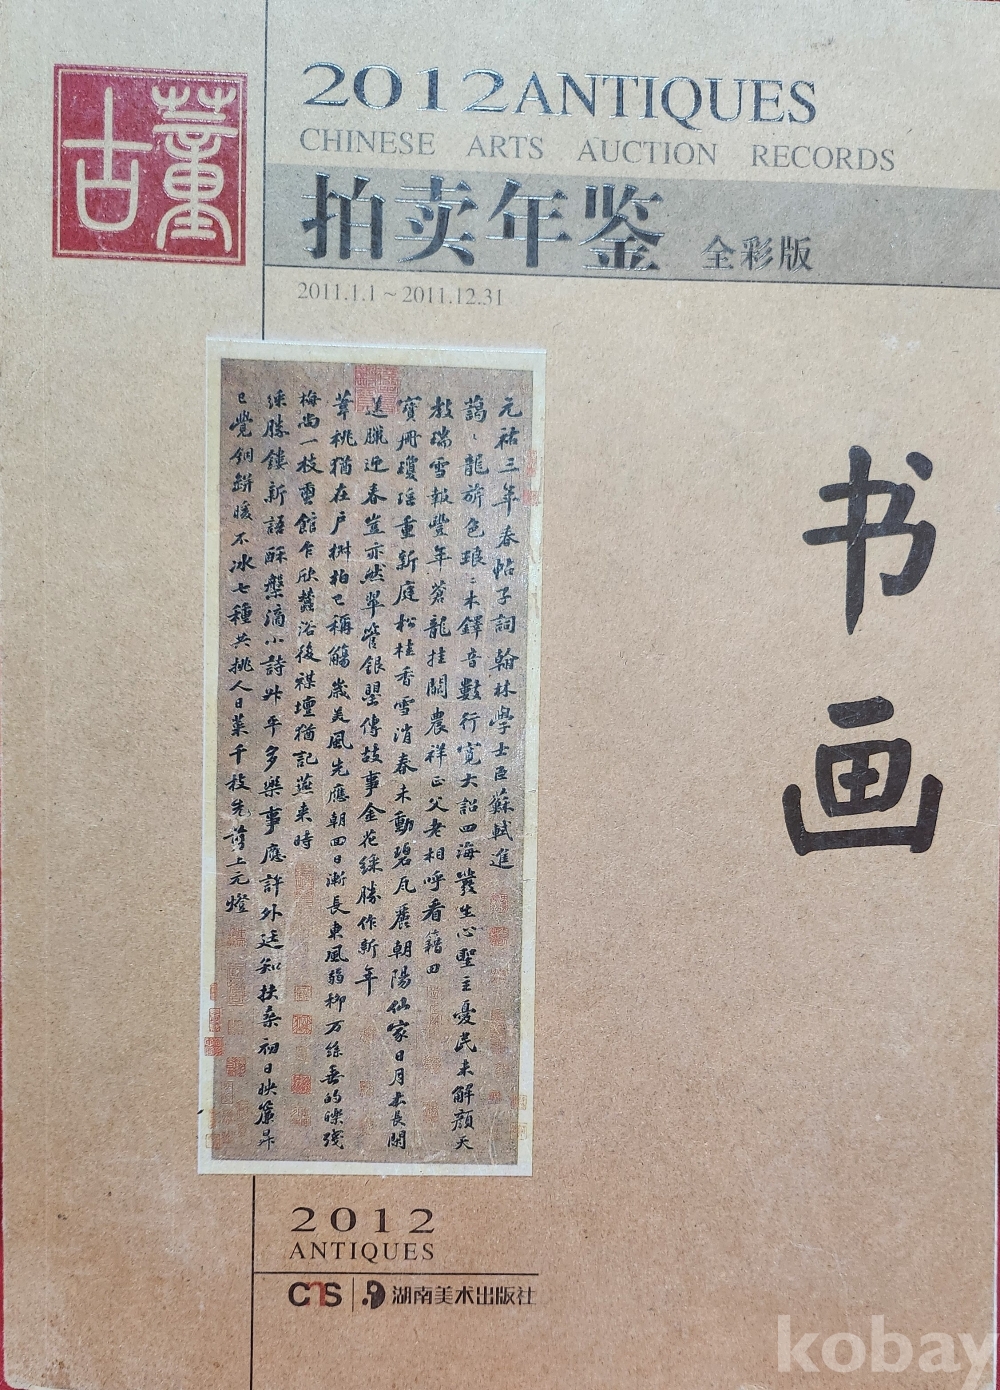 古董
2012 ANTIQUES
CHINESE ARTS AUCTION RECORDS
拍卖年鉴 全彩版
2011.1.1~2011.12.31
书画
元祐三年春帖子詞翰林學士臣蘇軾進
藹〻龍旂色琅〻木鐸音數行寬大詔四海發生心聖主憂民未解顏天
教瑞雪報豐年蒼龍挂闕農祥正父老相呼看藉田
寶冊瓊瑤重新庭松桂香雪消春未動碧瓦麗朝陽仙家日月本長閑
送臘迎春豈亦然翠管銀罌傳故事金花綵勝作新年
葦桃猶在户椒柏已稱觴歲美風先應朝回日漸長東風弱柳万絲垂的皪殘
梅尚一枝蠶館乍欣蠶浴後禖壇猶記燕来時
綵勝鏤新語酥槃滴小詩昇平多樂事應許外廷知扶桑初日映簾昇
已覺銅缾暖不冰七種共挑人日菜千枝先翦上元燈
2012
ANTIQUES
CNS 湖南美术出版社
kobay